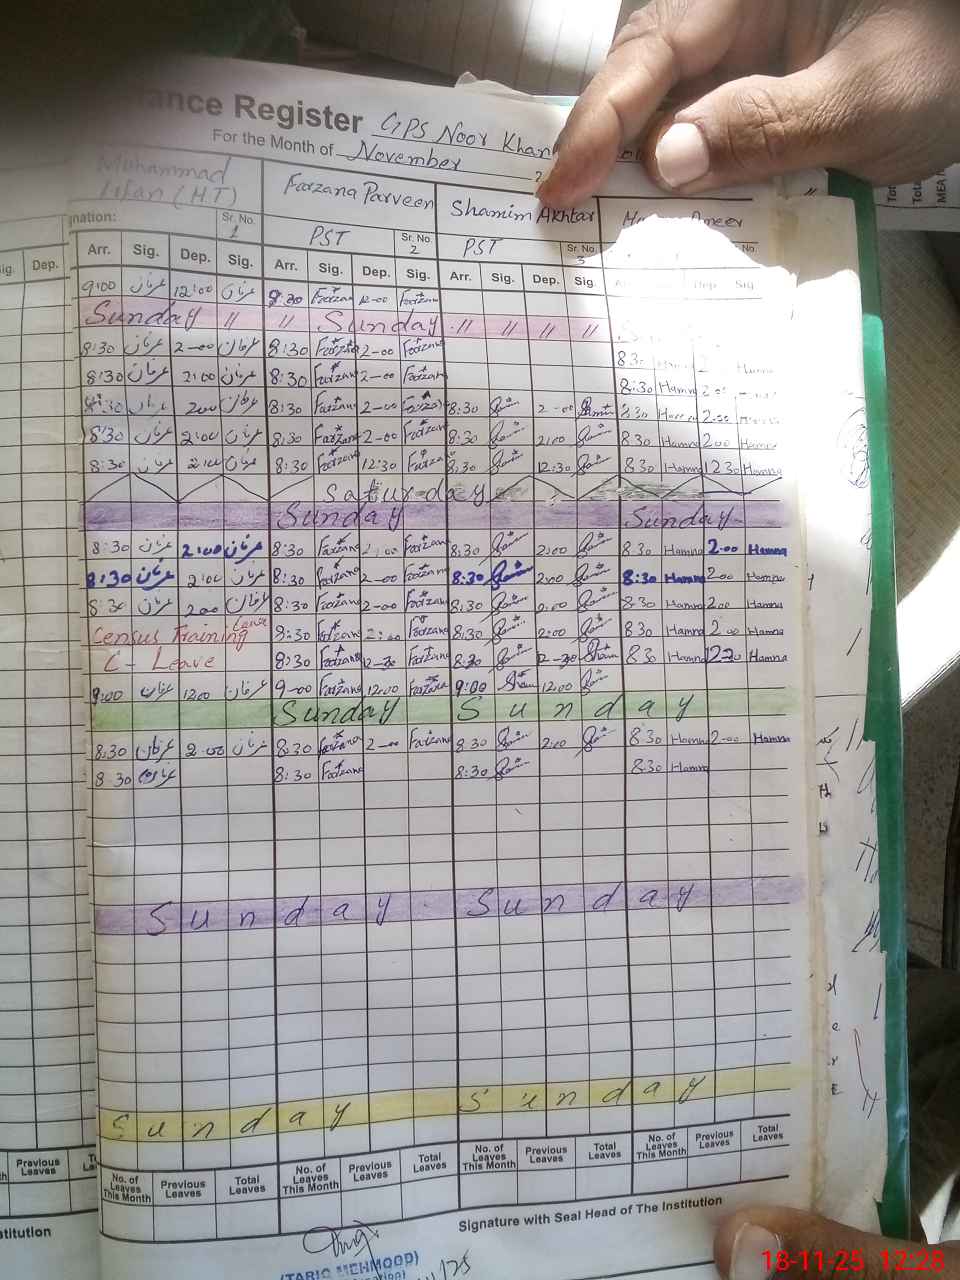 Register GPS Noor Khan
For the Month of November
Muhammad Irfan (H.T) Farzana Parveen Shamim Akhtar
Sr. No. 1 PST Sr. No. 2 PST Sr. No. 3
Sig. Dep. Arr. Sig. Dep. Sig. Arr. Sig. Dep. Sig. Arr. Sig. Dep. Sig. Dep. Sig.
9:00 عرفان 12:00 عرفان 8:30 Farzana 12-00 Farzana
Sunday " " Sunday " " " "
8:30 عرفان 2-00 عرفان 8:30 Farzana 2-00 Farzana 8 30
8:30 عرفان 2:00 عرفان 8:30 Farzana 2-00 Farzana 8:30 Hamna
8:30 عرفان 200 عرفان 8:30 Farzana 2-00 Farzana 8:30 2-00 8 30 2-00
8:30 عرفان 2:00 عرفان 8:30 Farzana 2-00 Farzana 8:30 2:00 8 30 Hamna 2 00 Hamna
8:30 عرفان 2:00 عرفان 8:30 Farzana 12:30 Farzana 8:30 12:30 8 30 Hamna 12 30 Hamna
Saturday
Sunday Sunday
8:30 عرفان 2:00 عرفان 8:30 Farzana 2:00 Farzana 8:30 2:00 8 30 Hamna 2-00 Hamna
8:30 عرفان 2:00 عرفان 8:30 Farzana 2-00 Farzana 8:30 2:00 8:30 Hamna 2-00 Hamna
8:30 عرفان 200 عرفان 8:30 Farzana 2-00 Farzana 8:30 2:00 8 30 Hamna 2 00 Hamna
Census Training Leave 8:30 Farzana 2:00 Farzana 8:30 2:00 8 30 Hamna 2 00 Hamna
C - Leave 8:30 Farzana 12-30 Farzana 8:30 12-30 8 30 Hamna 1230 Hamna
9:00 عرفان 1200 عرفان 9-00 Farzana 12:00 Farzana 9:00 12:00
Sunday Sunday
8:30 عرفان 2:00 عرفان 8:30 Farzana 2-00 Farzana 8:30 2:00 8 30 Hamna 2-00 Hamna
8 30 عرفان 8:30 Farzana 8:30 8:30 Hamna
Sunday Sunday
Sunday Sunday
Previous Leaves No. of Leaves This Month Previous Leaves Total Leaves No. of Leaves This Month Previous Leaves Total Leaves No. of Leaves This Month Previous Leaves Total Leaves No. of Leaves This Month Previous Leaves Total Leaves
Signature with Seal Head of The Institution
(TARIQ MEHMOOD)
18-11-25 12:28